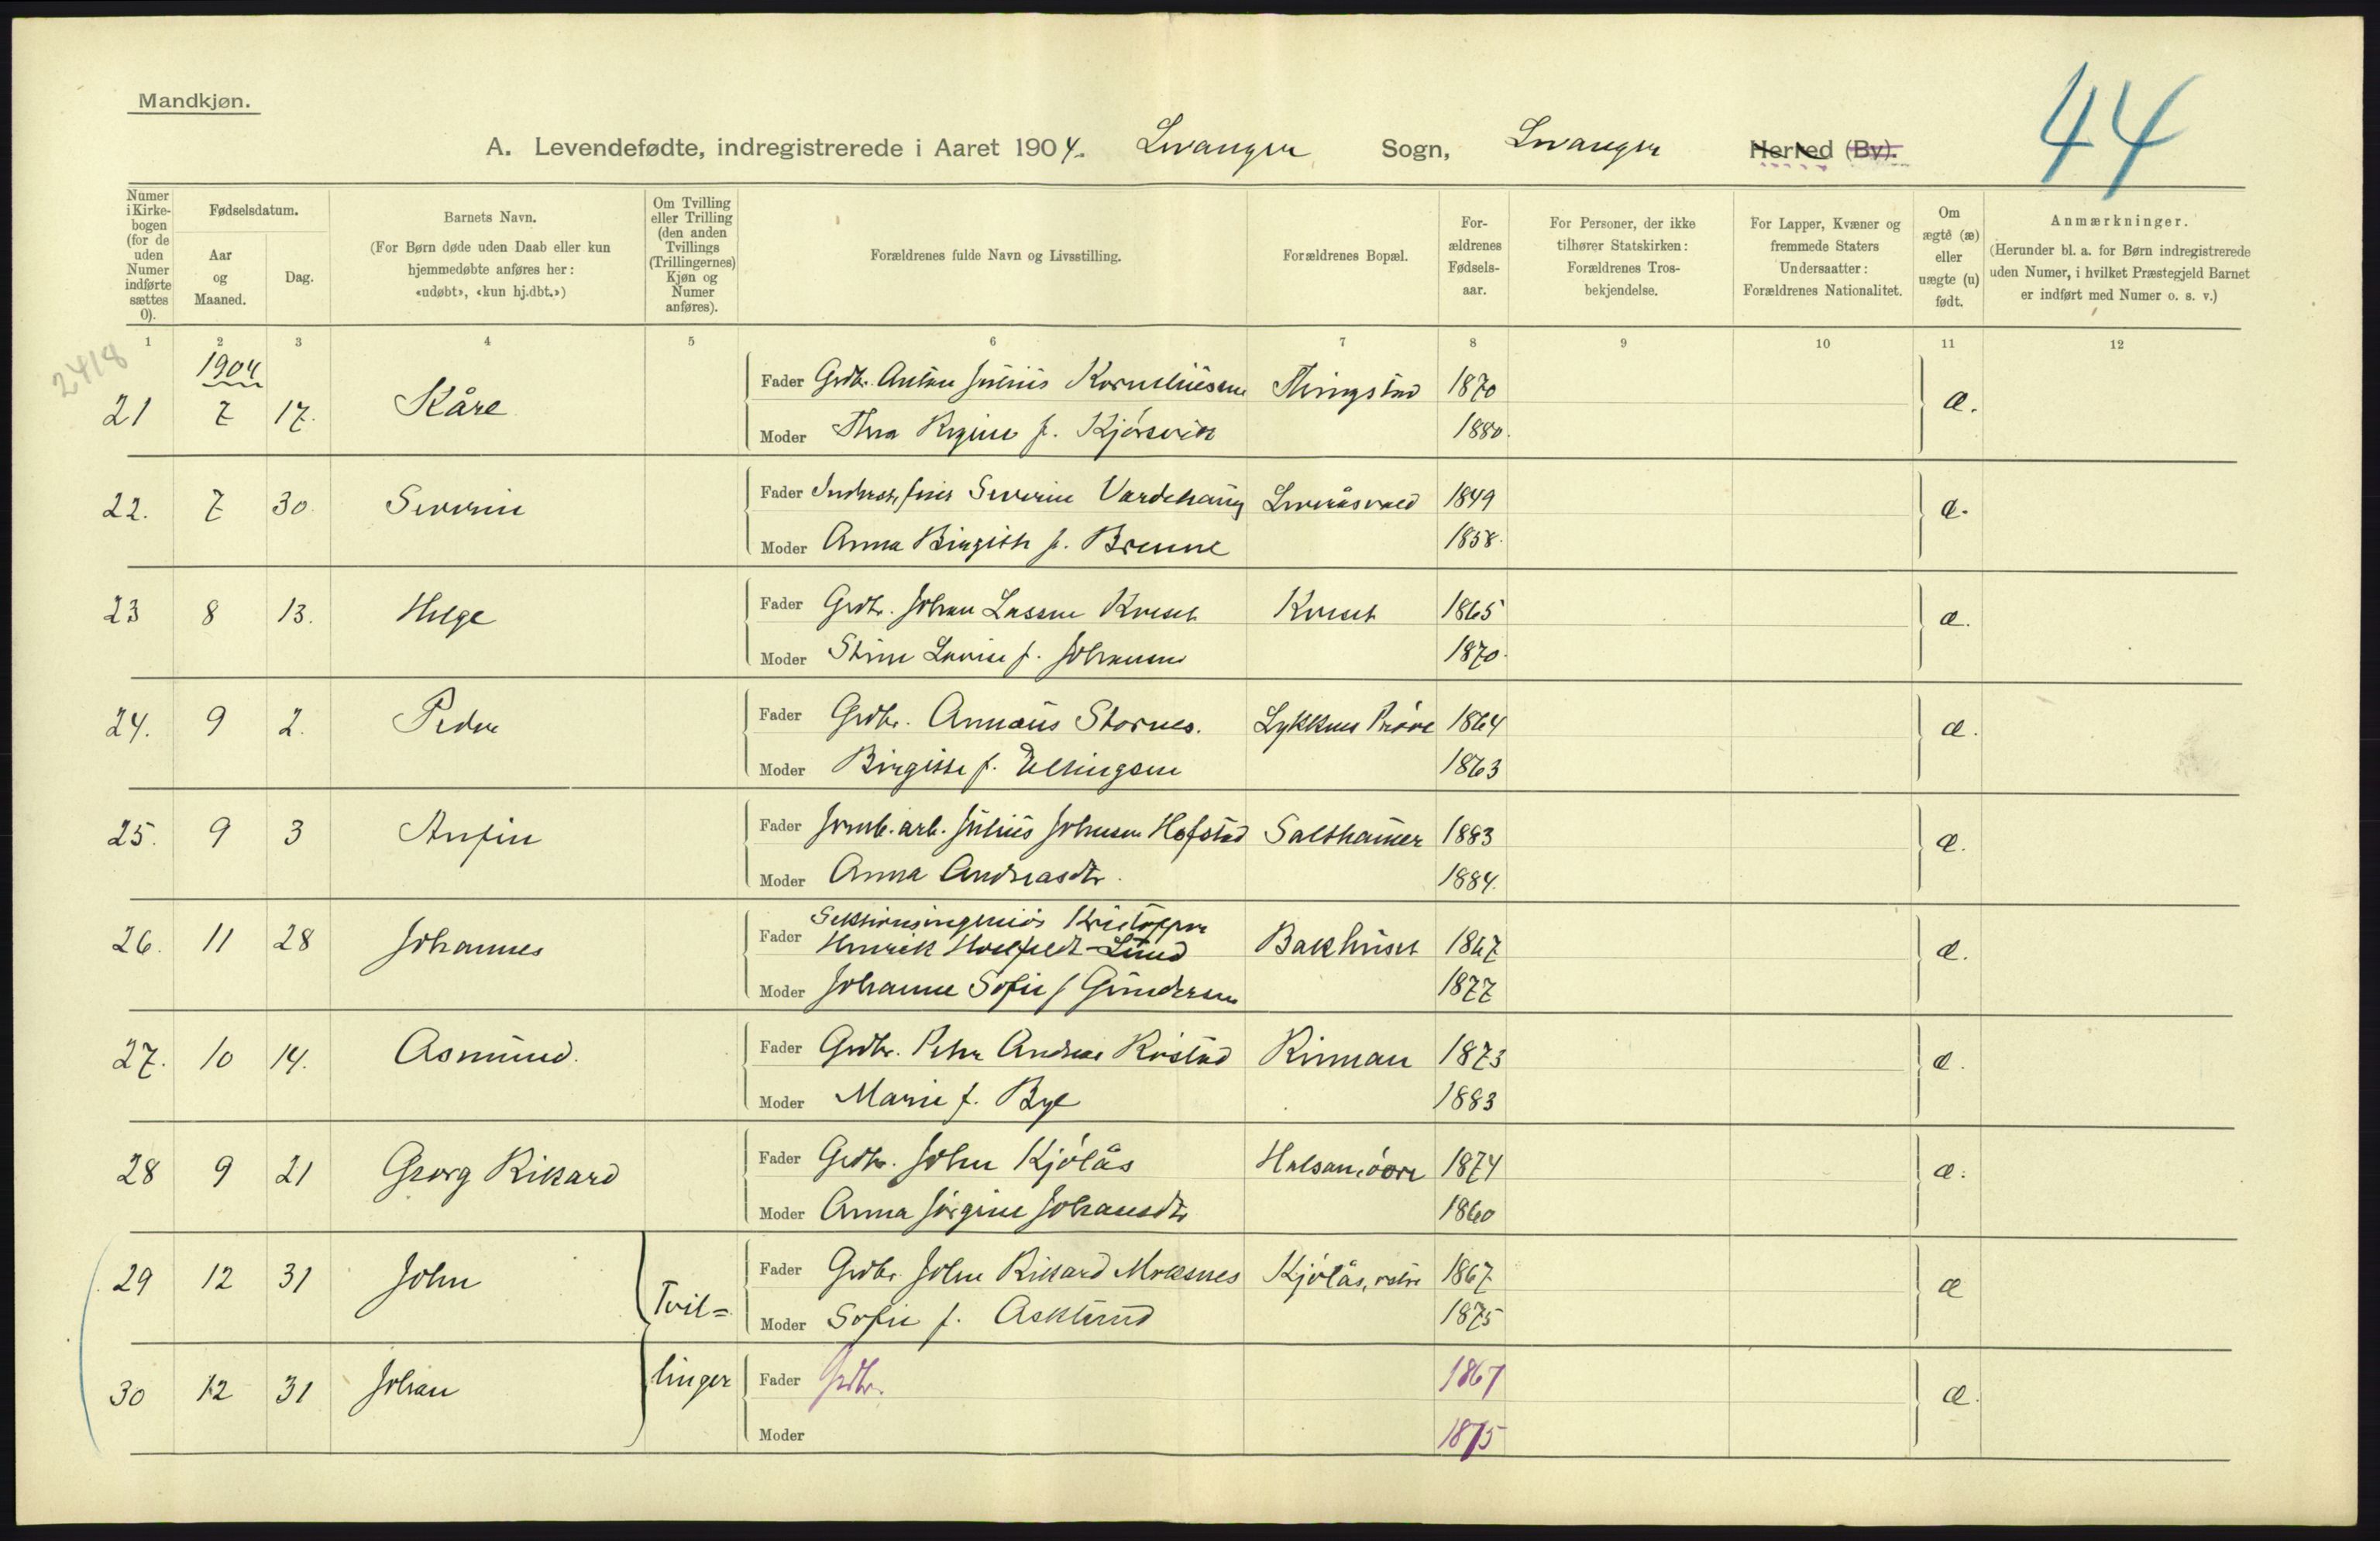 Mandkjøn.
44
A. Levendefødte, indregistrerede i Aaret 1904. Levanger Sogn, Levanger Herred (By).
Numer i Kirkebogen (for de uden Numer indførte sættes 0).
Fødselsdatum.
Aar og Maaned.
Dag.
Barnets Navn.
(For Børn døde uden Daab eller kun hjemmedøbte anføres her: «udøbt», «kun hj.dbt.»)
Om Tvilling eller Trilling (den anden Tvillings (Trillingernes) Kjøn og Numer anføres).
Forældrenes fulde Navn og Livsstilling.
Forældrenes Bopæl.
Forældrenes Fødselsaar.
For Personer, der ikke tilhører Statskirken: Forældrenes Trosbekjendelse.
For Lapper, Kvæner og fremmede Staters Undersaatter: Forældrenes Nationalitet.
Om ægte (æ) eller uægte (u) født.
Anmærkninger.
(Herunder bl. a. for Børn indregistrerede uden Numer, i hvilket Præstegjeld Barnet er indført med Numer o. s. v.)
1 2 3 4 5 6 7 8 9 10 11 12
2418
1904
21 7 17. Kåre Fader Grdbr. Anton Julius Korneliussen Thingstad 1870 æ.
Moder Thea Regine f. Kjørsvik 1880.
22. 7 30. Severin Fader Severin Vardehaug 1849 æ.
Moder Anna Birgith f. Brenne 1858.
23 8 13. Helge Fader Grdbr. Johan Lassen Kveset Kveset 1865 æ.
Moder Stine Lovise f. Johansen 1870.
24. 9 2. Peder Fader Grdbr. Annæus Stornes. Lykkens Prøve 1864 æ.
Moder Birgitte f. Ellingsen 1863
25. 9 3 Anfin Fader Jernb.arb. Julius Johnsen Hofstad Salthamer 1883 æ.
Moder Anna Andreasdtr. 1884.
26. 11 28 Johannes Fader Sektionsingeniør Kristoffer
Henrik Holfeldt-Lund Bakhuset 1867 æ.
Moder Johanne Sofie f Gundersen 1877
27. 10 14. Asmund. Fader Grdbr. Peter Andreas Rostad Rinnan 1873 æ.
Moder Marie f. Bye 1883
28 9 21 Georg Rikard Fader Grdbr. John Kjølås Halsan, øvre 1874 æ.
Moder Anna Jørgine Johansdtr 1860
29 12 31 John Tvil= Fader Grdbr. John Rikard Moksnes Kjølås, østre 1867 æ
Moder Sofie f. Asklund 1875
30 12 31 Johan linger Fader Grdbr. 1867 æ.
Moder 1875